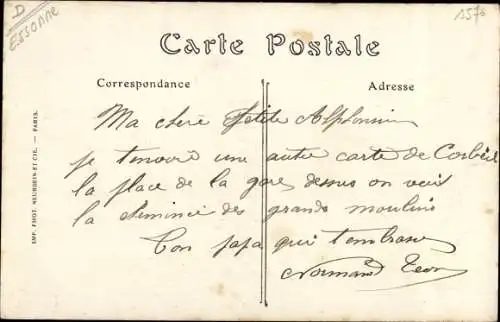 D
ESSONNE
1570
Carte Postale
Correspondance
Adresse
Ma chere Petite Alphonsine
je tenvoie une autre carte de Corbeil
la place de la gare dessus on voit
la cheminée des grands moulins
Ton papa qui tembrasse
Normand Leon
IMP. PHOT. NEURDEIN ET CIE. — PARIS.